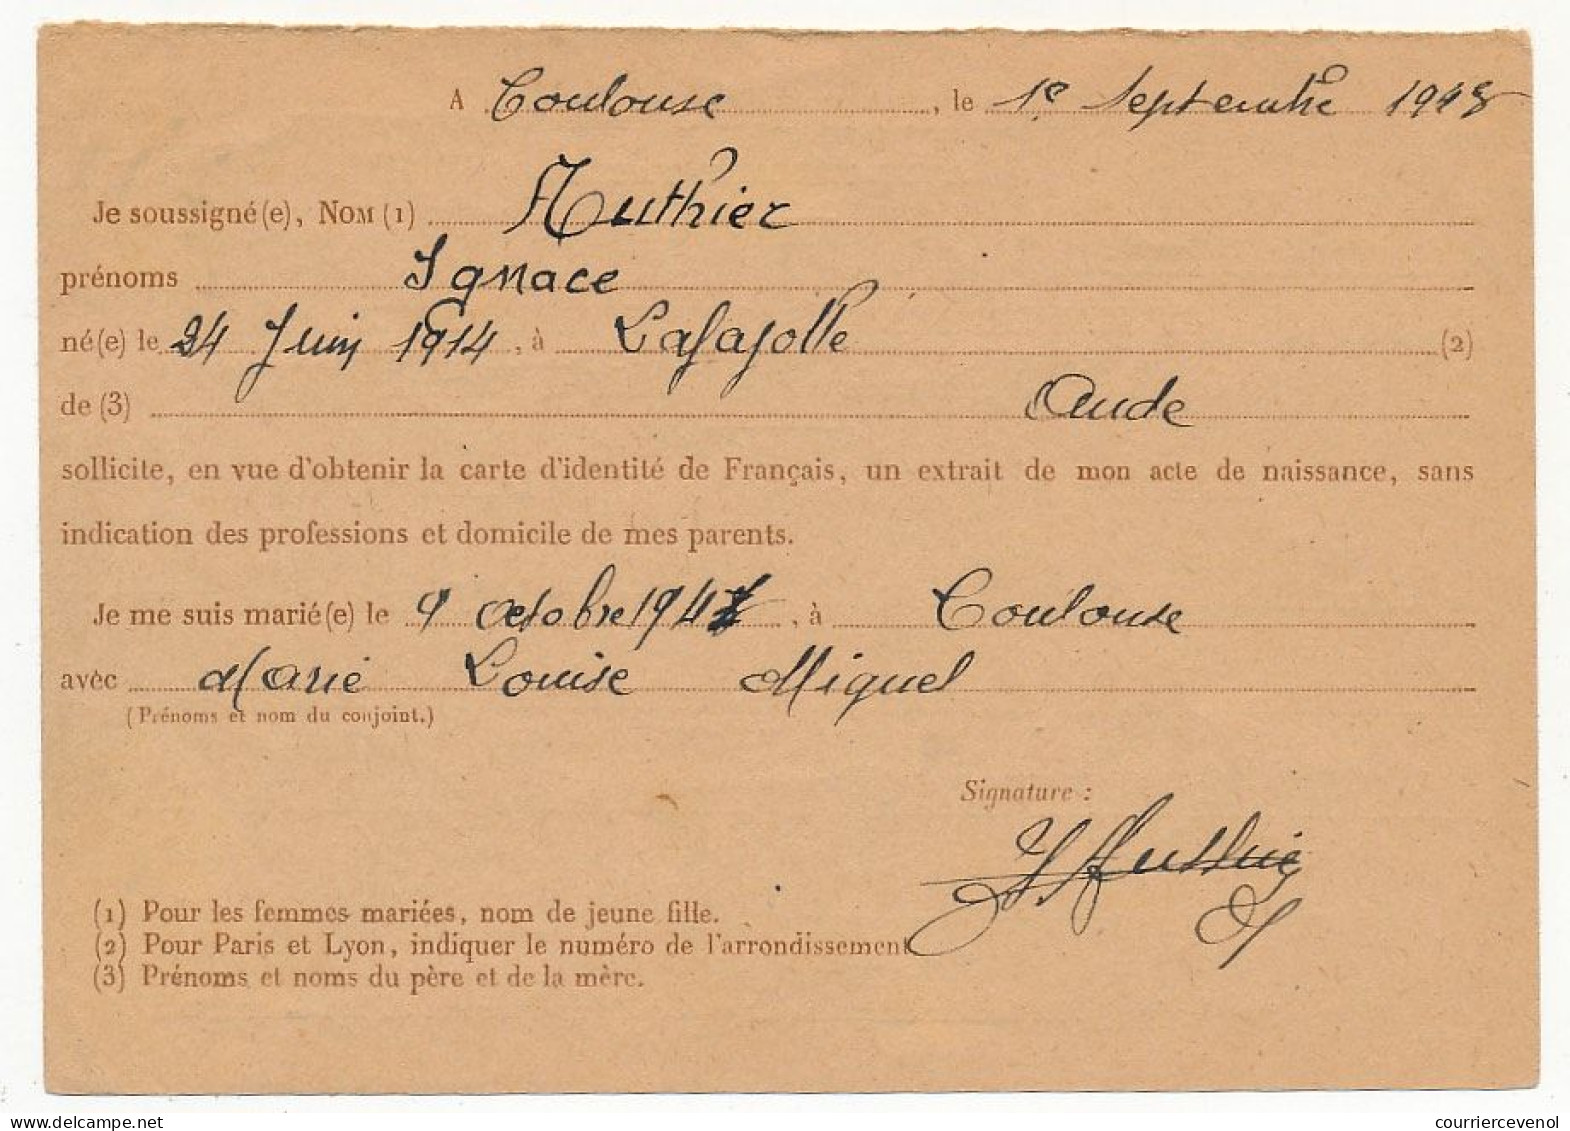 A Toulouse, le 1e Septembre 1948
Je soussigné(e), NOM (1) Authier
prénoms Ignace
né(e) le 24 Juin 1914, à Lafajolle (2)
de (3) Aude
sollicite, en vue d'obtenir la carte d'identité de Français, un extrait de mon acte de naissance, sans
indication des professions et domicile de mes parents.
Je me suis marié(e) le 9 octobre 1947, à Toulouse
avec Marie Louise Miquel
(Prénoms et nom du conjoint.)
Signature :
I. Authier
(1) Pour les femmes mariées, nom de jeune fille.
(2) Pour Paris et Lyon, indiquer le numéro de l'arrondissement
(3) Prénoms et noms du père et de la mère.
www.delcampe.net
courriercevenol